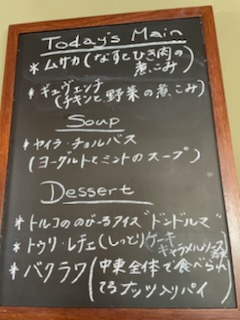 Today's Main
* ムサカ(なすとひき肉の
煮こみ)
* ギュヴェンチ
(チキンと野菜の煮こみ)
Soup
* ヤイラ・チョルバス
(ヨーグルトとミントのスープ)
Dessert
* トルコののび〜るアイス"ドンドルマ"
* トゥリ・レチェ(しっとりケーキ
キャラメルソース
* バクラワ(中東全体で食べられ
てるナッツ入りパイ)